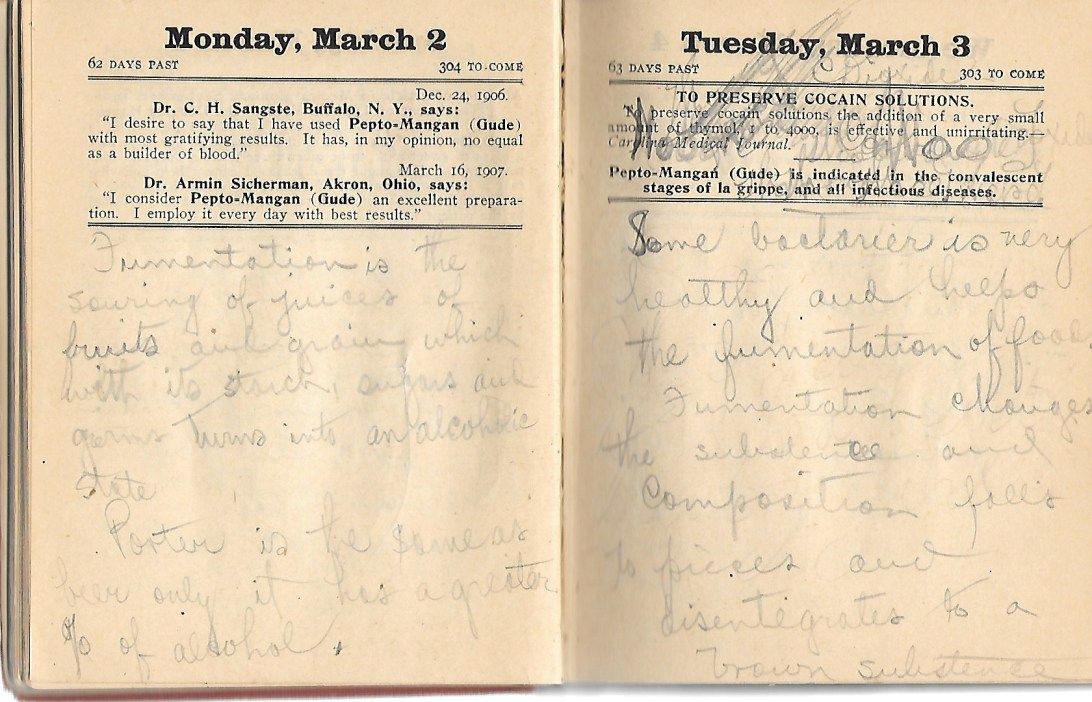 Monday, March 2
62 DAYS PAST 304 TO COME
Dec. 24, 1906.
Dr. C. H. Sangste, Buffalo, N. Y., says:
"I desire to say that I have used Pepto-Mangan (Gude)
with most gratifying results. It has, in my opinion, no equal
as a builder of blood."
March 16, 1907.
Dr. Armin Sicherman, Akron, Ohio, says:
"I consider Pepto-Mangan (Gude) an excellent prepara-
tion. I employ it every day with best results."
Fumentation is the
souring of juices of
fruits and grain which
with its starch, sugars and
germs turns into an alcoholic
state
Porter is the same as
beer only it has a greater
% of alcohol.
Tuesday, March 3
63 DAYS PAST 303 TO COME
TO PRESERVE COCAIN SOLUTIONS.
To preserve cocain solutions the addition of a very small
amount of thymol, 1 to 4000, is effective and unirritating.—
Carolina Medical Journal.
Pepto-Mangan (Gude) is indicated in the convalescent
stages of la grippe, and all infectious diseases.
Some bactarier is very
healthy and helps
the fumentation of food.
Fumentation changes
the and
Composition falls
to pieces and
disentegrates to a
brown substence